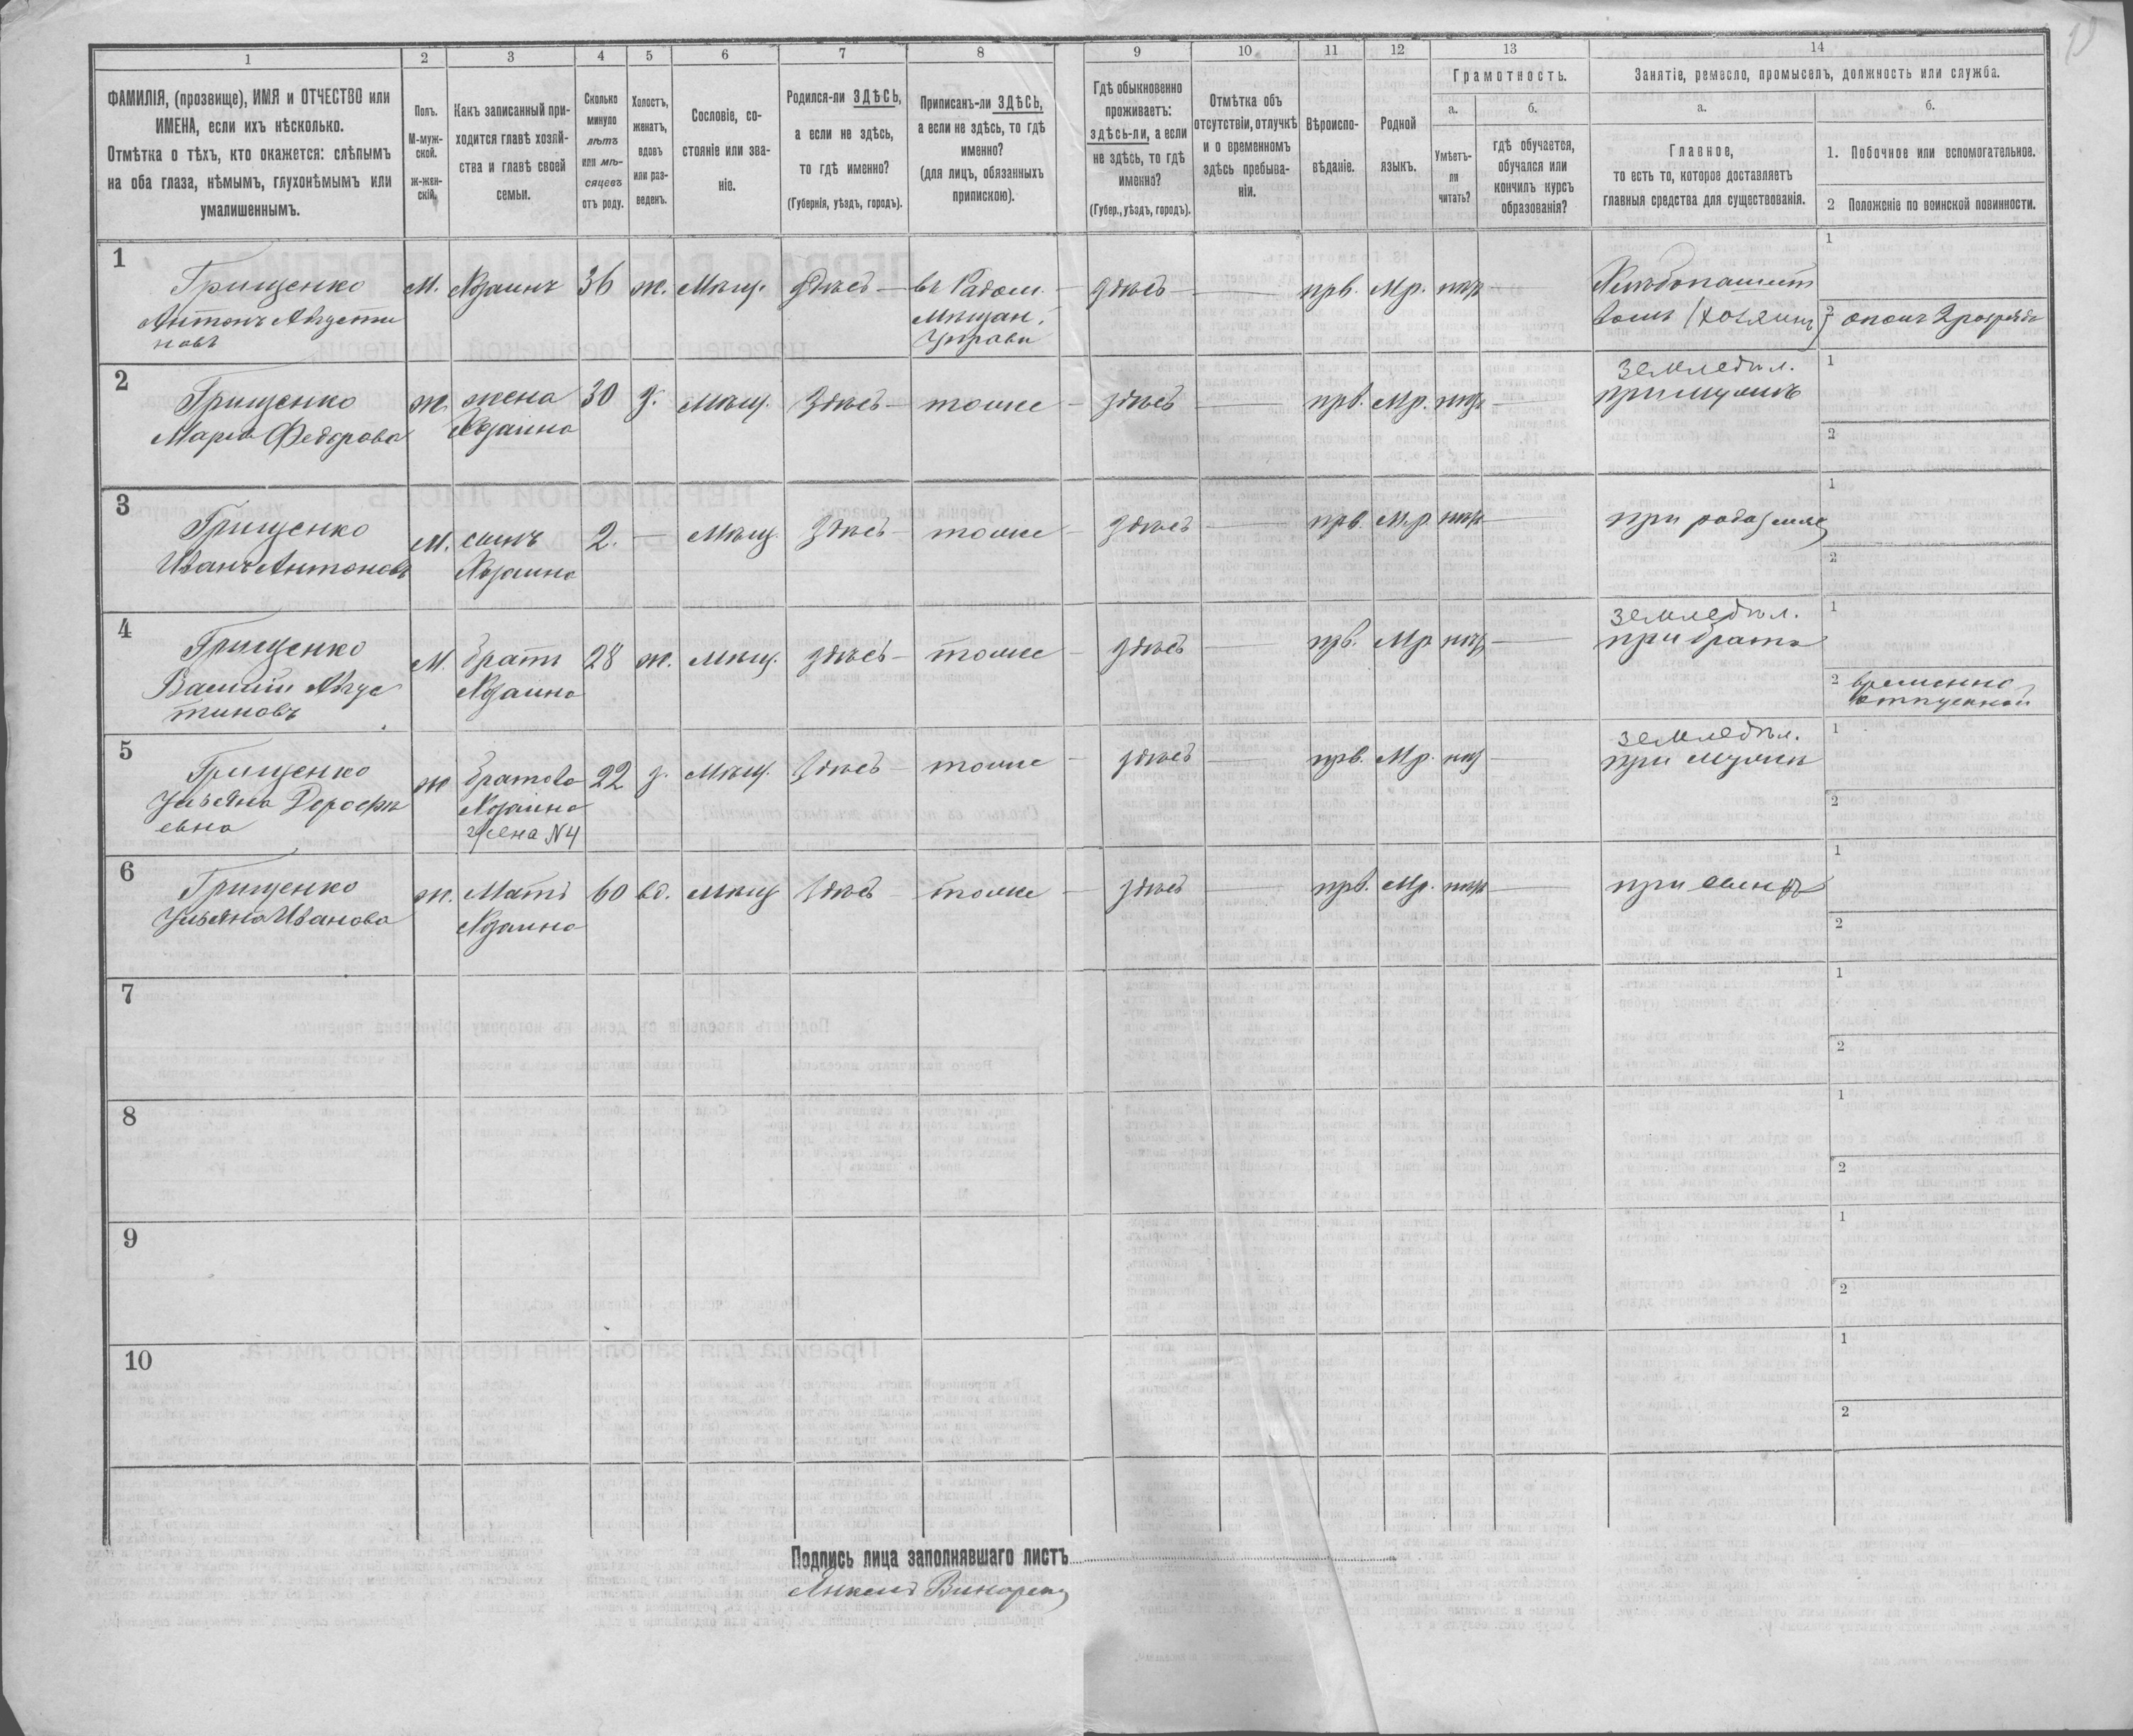 1 2 3 4 5 6 7 8 9 10 11 12 13 14
ФАМИЛІЯ, (прозвище), ИМЯ и ОТЧЕСТВО или
ИМЕНА, если ихъ нѣсколько.
Отмѣтка о тѣхъ, кто окажется: слѣпымъ
на оба глаза, нѣмымъ, глухонѣмымъ или
умалишеннымъ.
Полъ.
М-муж-
ской.
ж-жен-
скій.
Какъ записанный при-
ходится главѣ хозяй-
ства и главѣ своей
семьи.
Сколько
минуло
лѣтъ
или мѣ-
сяцевъ
отъ роду.
Холостъ,
женатъ,
вдовъ
или раз-
веденъ.
Сословіе, со-
стояніе или зва-
ніе.
Родился-ли ЗДѢСЬ,
а если не здѣсь,
то гдѣ именно?
(Губернія, уѣздъ, городъ).
Приписанъ-ли ЗДѢСЬ,
а если не здѣсь, то гдѣ
именно?
(для лицъ, обязанныхъ
припискою).
Гдѣ обыкновенно
проживаетъ:
здѣсь-ли, а если
не здѣсь, то гдѣ
именно?
(Губер., уѣздъ, городъ).
Отмѣтка объ
отсутствіи, отлучкѣ
и о временномъ
здѣсь пребыва-
ніи.
Вѣроиспо-
вѣданіе.
Родной
языкъ.
Грамотность.
а.
Умѣетъ-
ли
читать?
б.
гдѣ обучается,
обучался или
кончилъ курсъ
образованія?
Занятіе, ремесло, промыселъ, должность или служба.
а.
Главное,
то есть то, которое доставляетъ
главныя средства для существованія.
б.
1. Побочное или вспомогательное.
2 Положеніе по воинской повинности.
1
Грищенко
Антонъ Августи
новъ
М. Хозяинъ 36 ж. Мѣщ. здѣсь
въ Радом.
Мѣщан.
Управи
здѣсь — прв. Мр. нѣтъ —
Хлѣбопашест
вомъ (хозяинъ)
1
2 ополч 2 разряда
2
Грищенко
Марія Федорова
ж. жена
Хозяина
30 з. Мѣщ. здѣсь — тоже — здѣсь — прв. Мр. нѣтъ —
земледѣл.
при мужѣ
1
2
3
Грищенко
Иванъ Антоновъ
М. сынъ
Хозяина
2. — Мѣщ. здѣсь — тоже — здѣсь — прв. Мр нѣтъ —
при родителѣ
1
2
4
Грищенко
Василій Авгус
тиновъ
М. братъ
Хозяина
28 ж. Мѣщ. здѣсь — тоже здѣсь — прв. Мр нѣтъ —
земледѣл.
при братѣ
1
2 временно
отпускной
5
Грищенко
Ульяна Дорофѣ
евна
ж братова
Хозяина
жена N4
22 з. Мѣщ. здѣсь — тоже — здѣсь — прв. Мр. нѣтъ —
земледѣл.
при мужѣ
1
2
6
Грищенко
Ульяна Иванова
ж. Мать
Хозяина
60 вд. Мѣщ здѣсь — тоже — здѣсь — прв. Мр. нѣтъ —
при сынѣ
1
2
7
1
2
8
1
2
9
1
2
10
1
2
Подпись лица заполнявшаго листъ